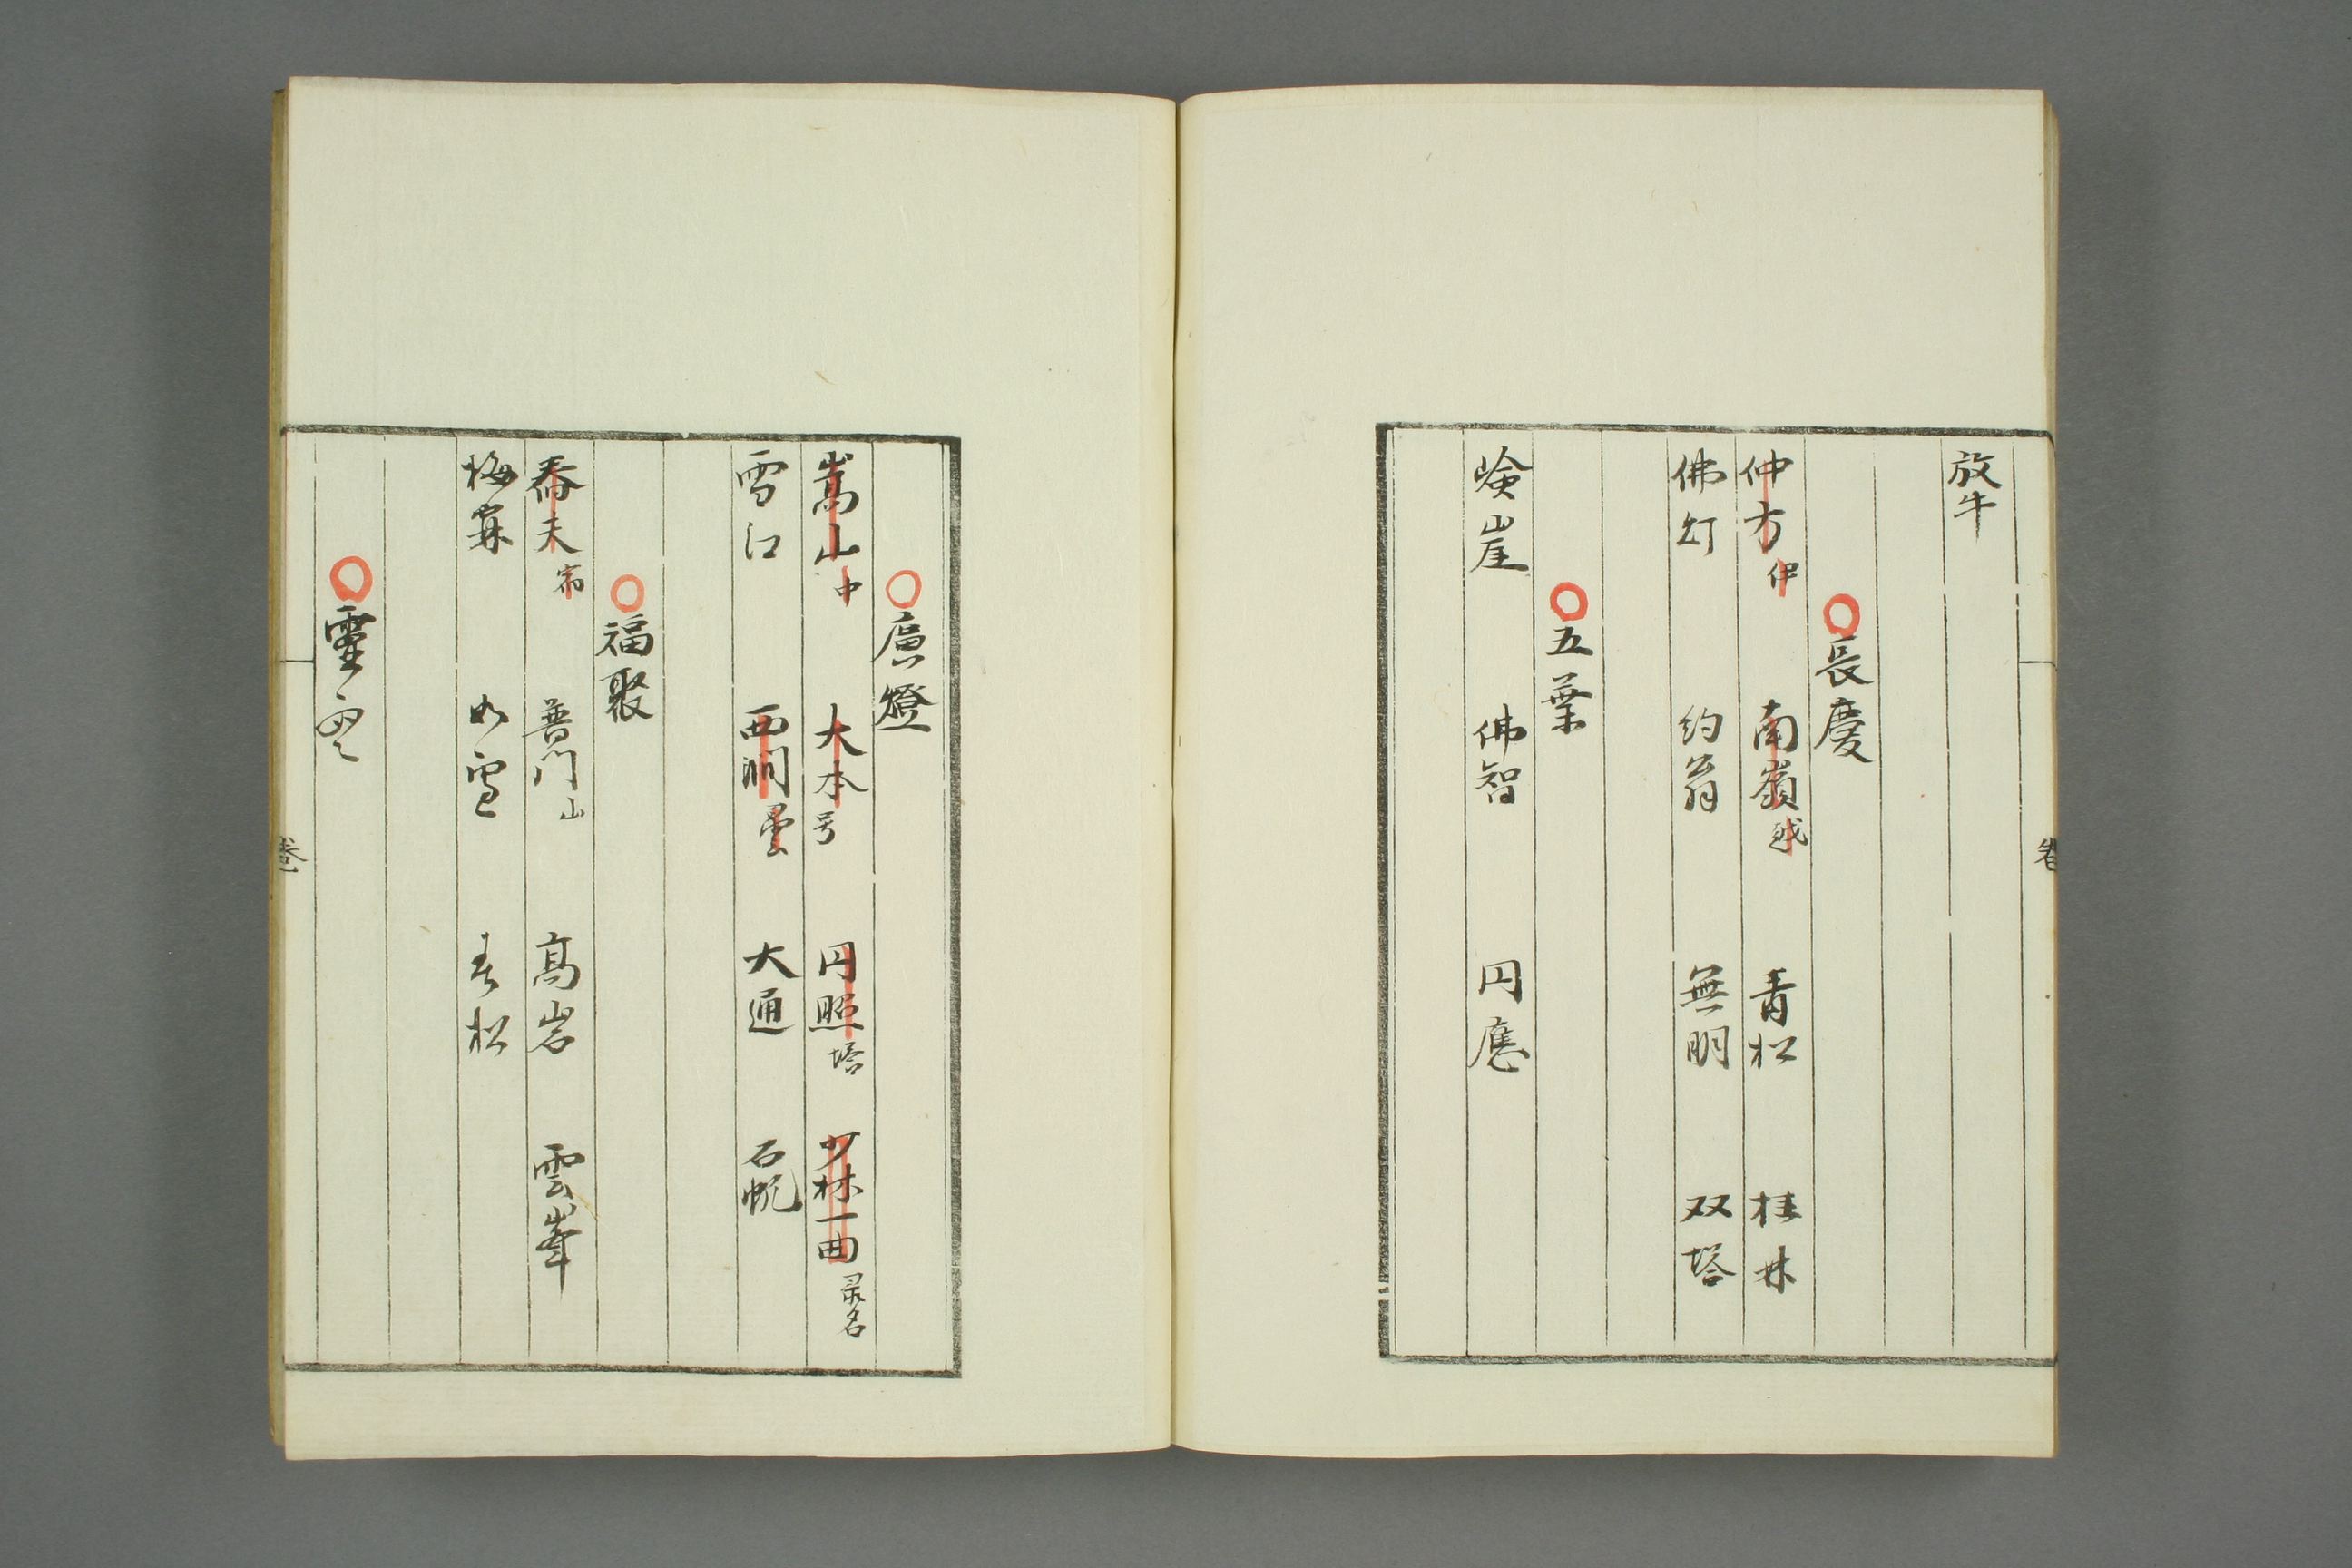 放牛
長慶
仲方伊 南嶺越 青松 桂林
佛灯 約翁 無明 双塔
五葉
嶮崖 佛智 円應
廣燈
嵩山中 大本号 円照塔 少林一曲录名
雪江 西澗曇 大通 石帆
福聚
喬夫 普門山 高岩 雲峯
梅 如雪 春松
靈雲
卷
卷一